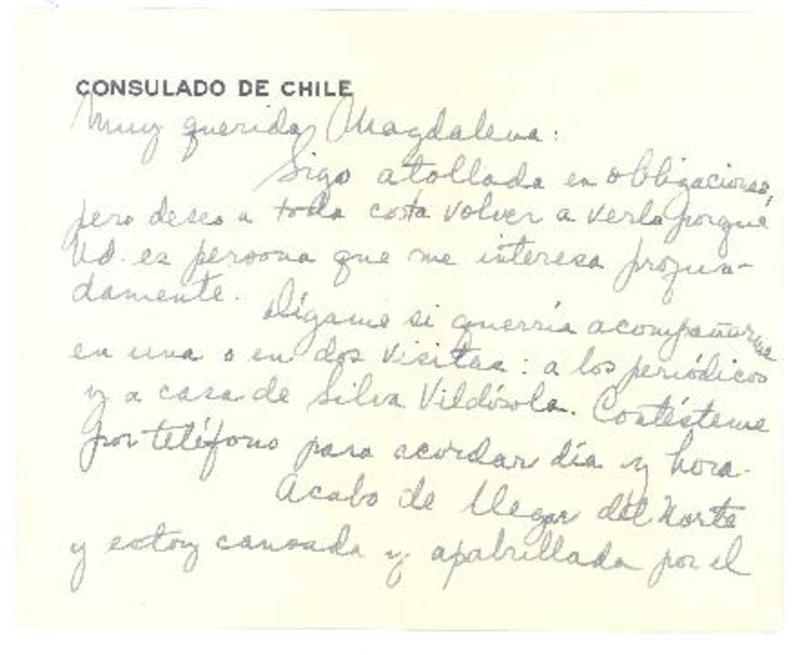 CONSULADO DE CHILE
Muy querida Magdalena:
Sigo atollada en obligaciones,
pero deseo a toda costa volver a verla porque
Ud. es persona que me interesa profun-
damente.
Dígame si querría acompañarme
en una o en dos visitas: a los periódicos
y a casa de Silva Vildósola. Contésteme
por teléfono para acordar día y hora.
Acabo de llegar del Norte
y estoy cansada y apabrillada por el